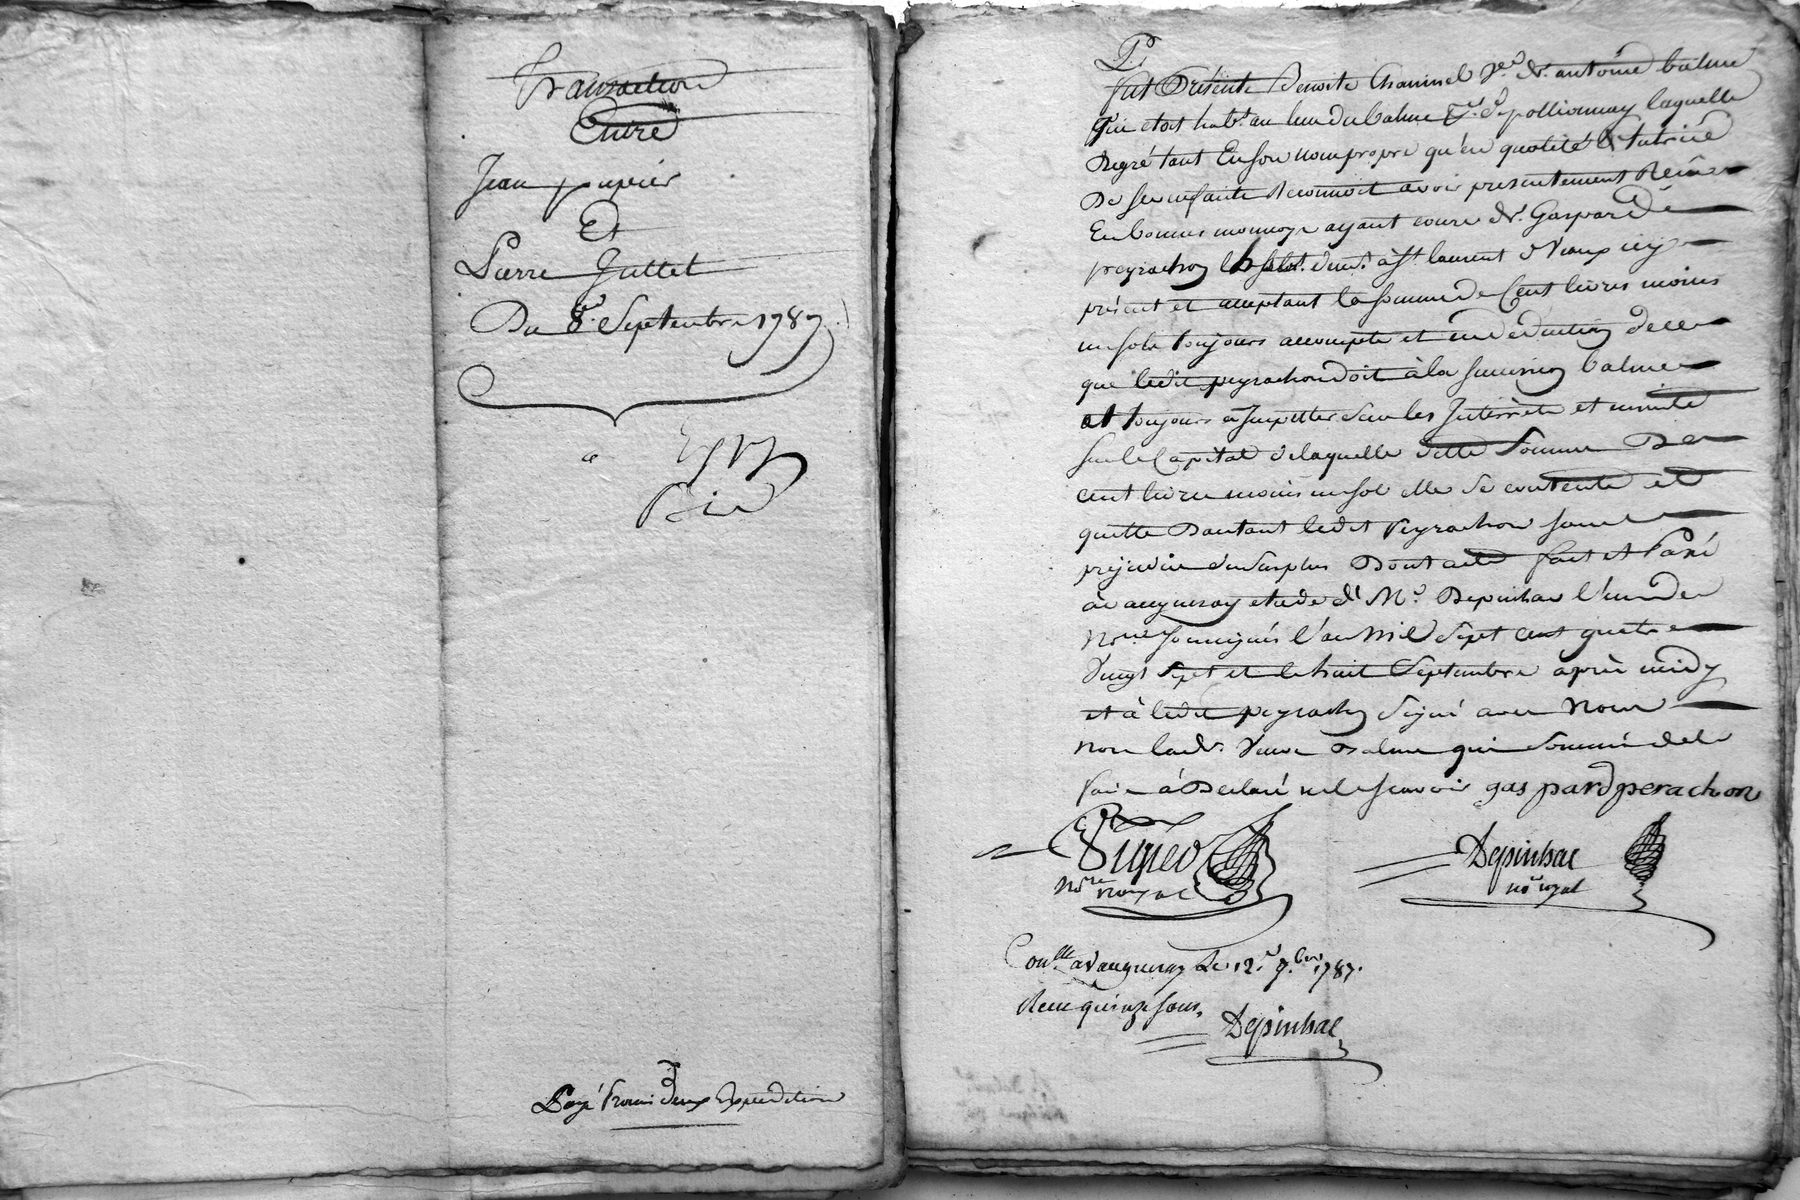 Transaction
Entre
Jean
Et
Pierre Juttet
Du 8.e Septembre 1787
Payé pour deux Expeditions
fut Présente Benoite Chaminel ve. dt. antoine balme
Qui etoit habt. au lieu du balme de pollionnay laquelle
Degré tant En son nom propre qu'en qualité de tutrice
De ses enfants Reconnoit avoir presentement Reçu
En bonnes monnoye ayant cours dt. Gaspard
peyrachon demt. à st. laurent de Vaux icy
présent et acceptant la somme de Cent livres moins
un sols toujours accompte et en deduction de ce
que ledit peyrachon doit à la succession balme
et toujours à Jmputter sur les Jnterrets et ensuite
sur le Capital de laquelle ditte Somme De
cent livres moins un sol elle se contente et
quitte Dautant ledit Peyrachon sans
prejudice du surplus Dont acte fait et Passé
à vaugneray etude de Me. Depinhac l'un des
Nores soussignés l'an Mil Sept cent quatre
Vingt Sept et le huit Septembre après midy
et à ledit peyrachon Signé avec Nous
non lade. Veuve Balme qui sommée de le
faire à Declaré ne le scavoir gaspard perachon
Nore royal
Depinhac
no.re royal
Conlle. a Vaugneray Le 12.e 7.bre 1787.
Recu quinze sous,
Depinhac